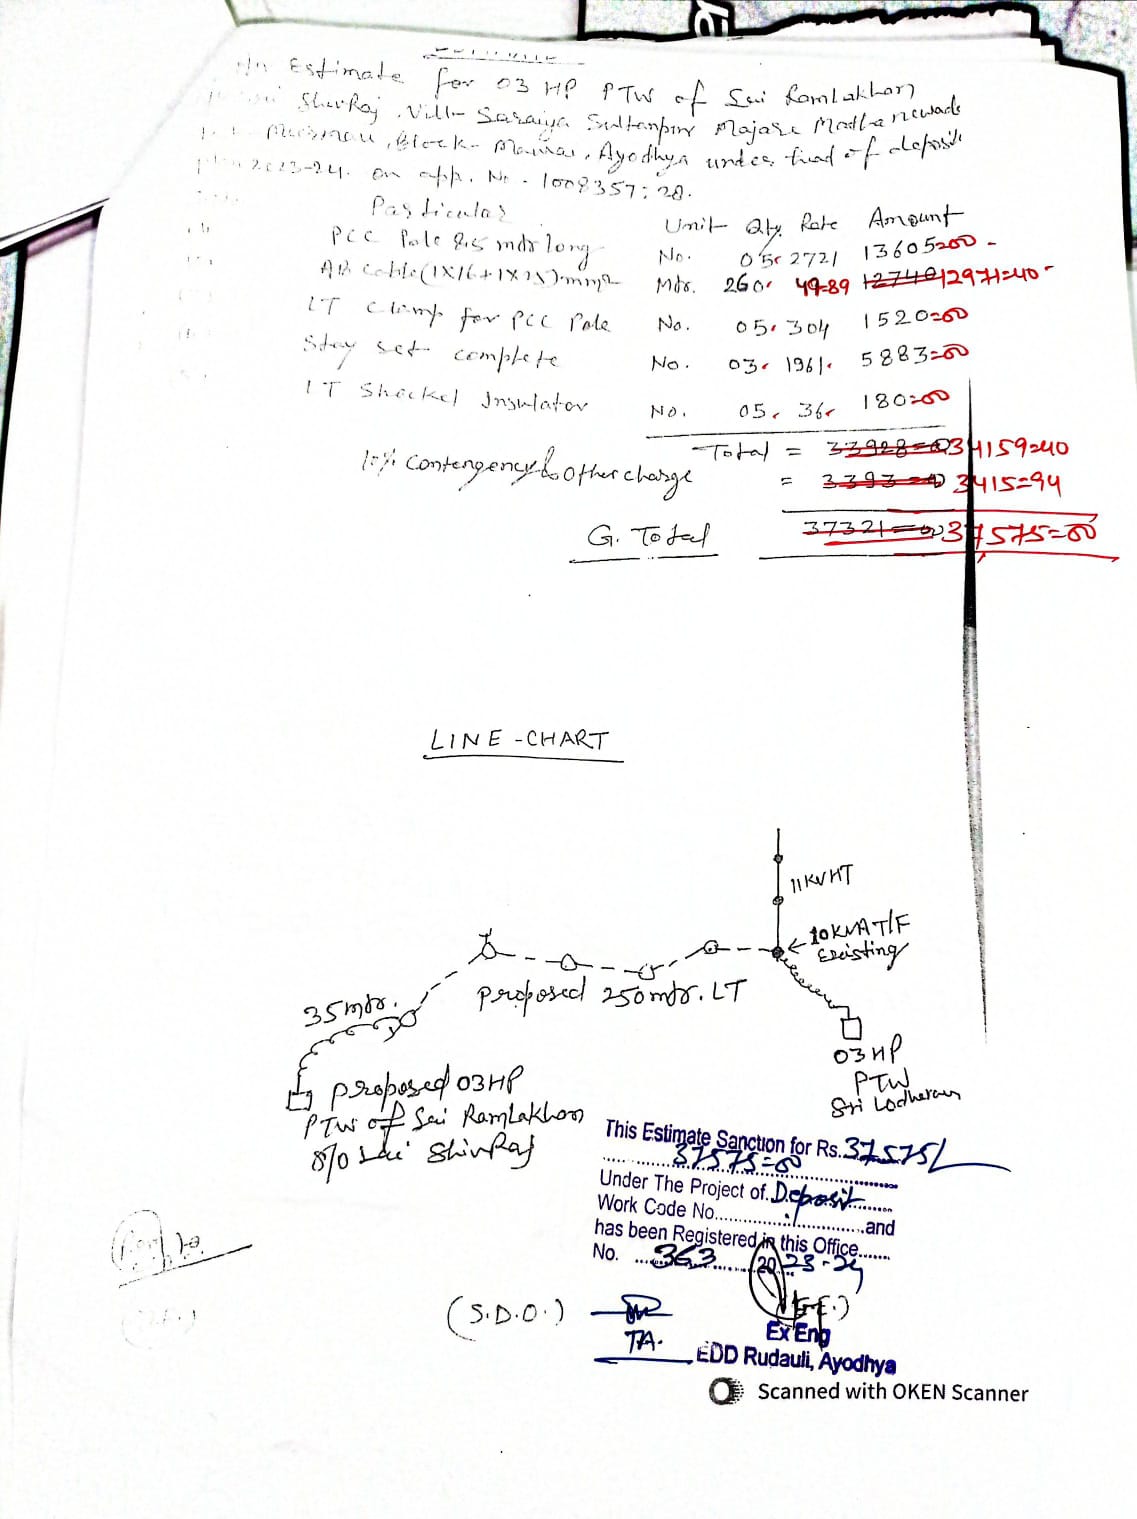 An Estimate for 03 HP PTW of Sri Ramlakhan
ShivRaj, Vill- Saraiya Sultanpur Majare
Block- Ayodhya under head of deposit
2023-24. on app. No - 1008357:28.
Particular Unit Qty. Rate Amount
PCC Pole 8.5 mtr long No. 05 2721 13605=00
AB Cable (1X16+1X25) mm2 Mtr. 260 49=89 12740 12971=40
LT Clamp for PCC Pole No. 05 304 1520=00
Stay set complete No. 03 1961 5883=00
LT Shackel Insulator No. 05 36 180=00
Total = 33928=00 34159=40
10% Contengency & Other charge = 3393=00 3415=94
G. Total 37321=00 37575=00
LINE-CHART
11KV HT
10KVA T/F
Existing
Proposed 250 mtr. LT
35 mtr.
03 HP
PTW
Sri
Proposed 03 HP
PTW of Sri Ramlakhan
S/o Sri ShivRaj
This Estimate Sanction for Rs. 37575/
37575=00
Under The Project of. Deposit
Work Code No. and
has been Registered in this Office
No. 363 2023-24
(S.D.O.)
TA.
(E.E.)
Ex Eng
EDD Rudauli, Ayodhya
Scanned with OKEN Scanner